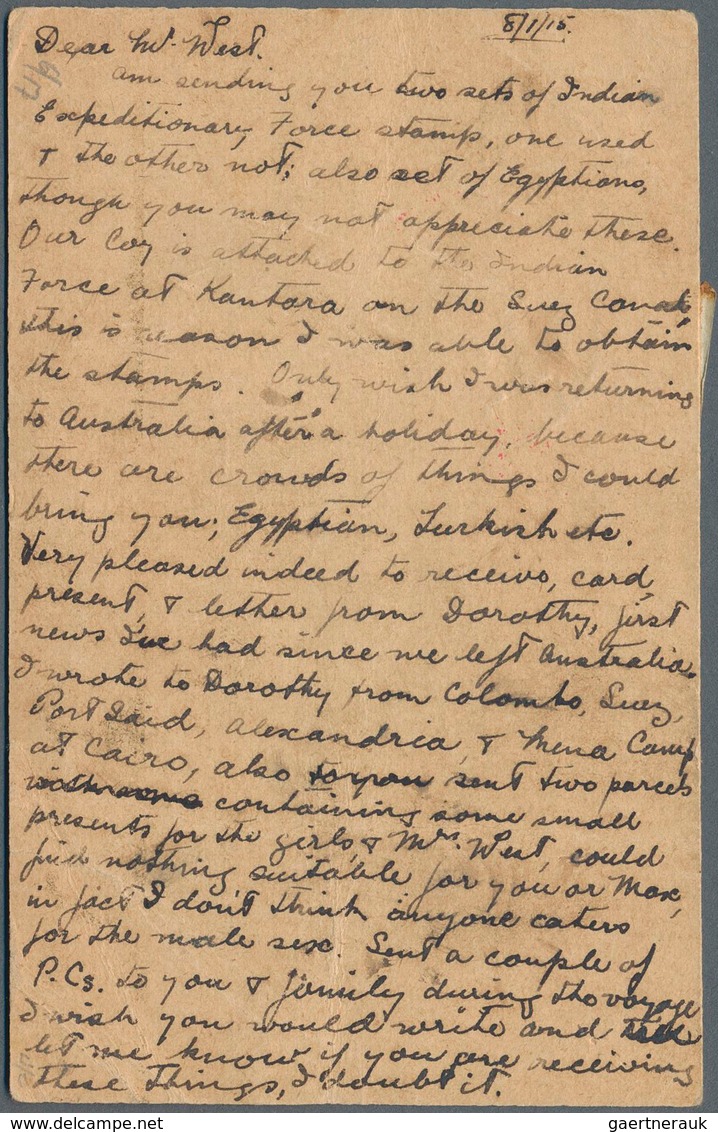 8/1/15.
Dear Mr. West.
am sending you two sets of Indian
Expeditionary Force stamps, one used
& the other not; also set of Egyptians,
though you may not appreciate these.
Our Coy is attached to the Indian
Force at Kantara on the Suez Canal,
this is reason I was able to obtain
the stamps. Only wish I was returning
to Australia after a holiday, because
there are crowds of things I could
bring you; Egyptian, Turkish etc.
Very pleased indeed to receive, card,
present, & letter from Dorothy, first
news I've had since we left Australia.
I wrote to Dorothy from Colombo, Suez,
Port Said, Alexandria, & Mena Camp
at Cairo, also to you sent two parcels
containing some small
presents for the girls & Mrs. West, could
find nothing suitable for you or Max,
in fact I don't think anyone caters
for the male sex. Sent a couple of
P.Cs. to you & family during the voyage
I wish you would write and
let me know if you are receiving
these things, I doubt it.
gaertnerauk